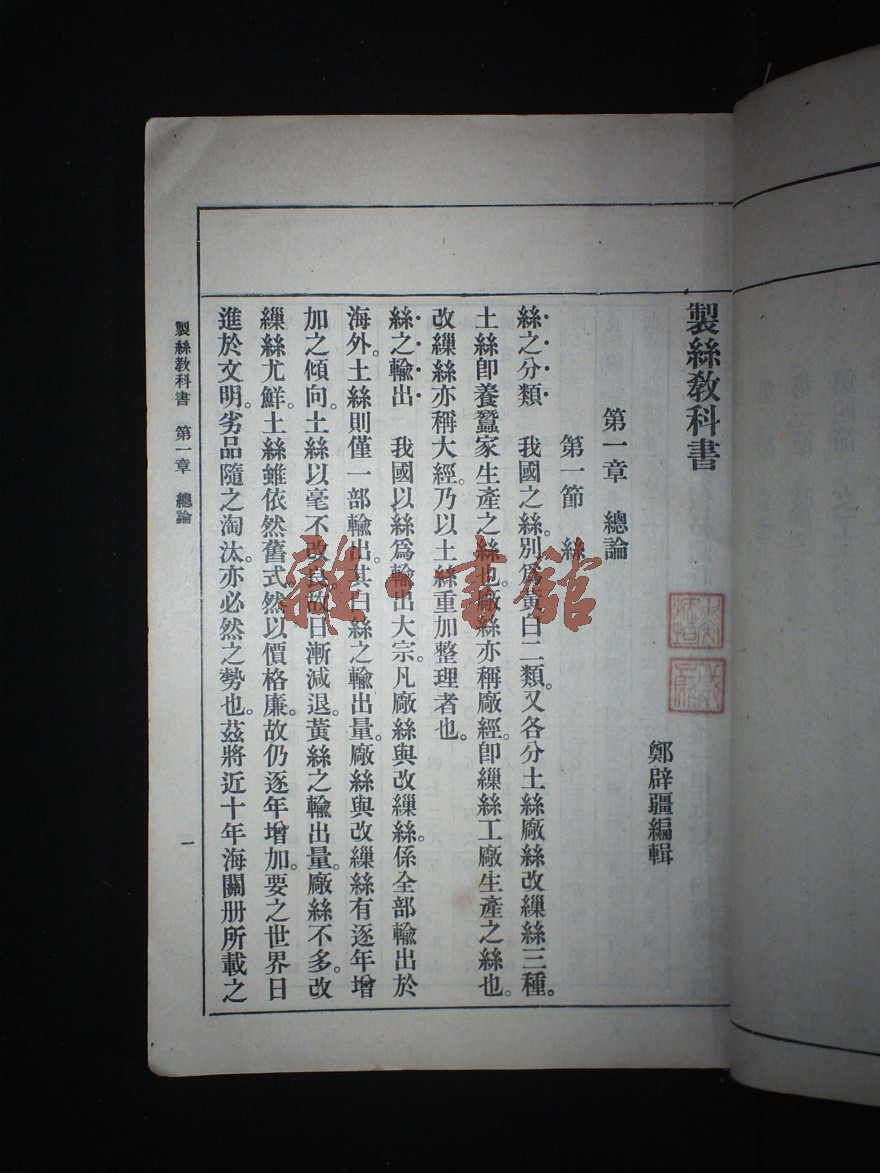 製絲教科書
鄭辟疆編輯
第一章 總論
第一節 絲
絲之分類 我國之絲。別爲黃白二類。又各分土絲廠絲改繅絲三種。
土絲卽養蠶家生產之絲也。廠絲亦稱廠經。卽繅絲工廠生產之絲也。
改繅絲亦稱大經。乃以土絲重加整理者也。
絲之輸出 我國以絲爲輸出大宗。凡廠絲與改繅絲。係全部輸出於
海外。土絲則僅一部輸出。其白絲之輸出量。廠絲與改繅絲有逐年增
加之傾向。土絲以毫不改良。故日漸減退。黃絲之輸出量。廠絲不多。改
繅絲尤鮮。土絲雖依然舊式。然以價格廉。故仍逐年增加。要之世界日
進於文明。劣品隨之淘汰。亦必然之勢也。茲將近十年海關册所載之
製絲教科書 第一章 總論
一
雜·書館